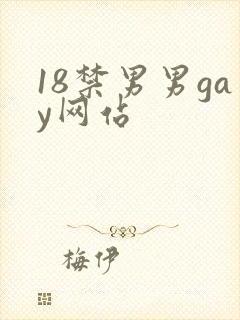 18禁男男ga
y网佔
梅伊